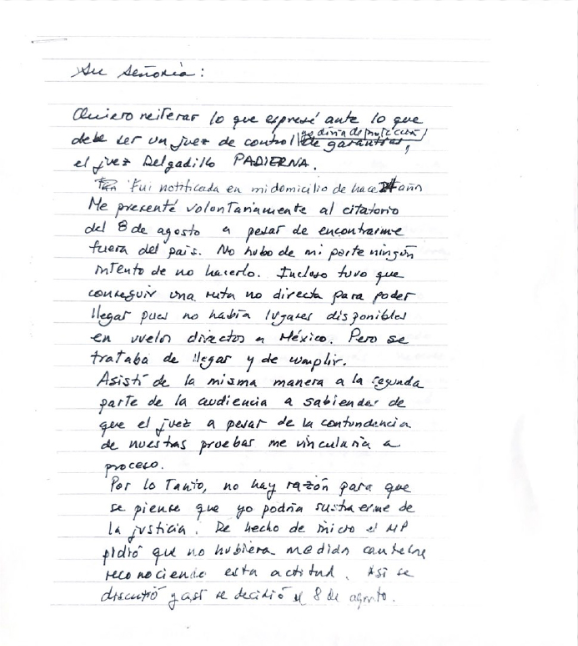 Su Señoría:
Quiero reiterar lo que expresé ante lo que
debe ser un juez de control
de garantías,
el juez Delgadillo PADIERNA.
Fui notificada en mi domicilio de hace año
Me presenté voluntariamente al citatorio
del 8 de agosto a pesar de encontrarme
fuera del país. No hubo de mi parte ningún
intento de no hacerlo. Incluso tuve que
conseguir una ruta no directa para poder
llegar pues no había lugares disponibles
en vuelos directos a México. Pero se
trataba de llegar y de cumplir.
Asistí de la misma manera a la segunda
parte de la audiencia a sabiendas de
que el juez a pesar de la contundencia
de nuestras pruebas me vincularía a
proceso.
Por lo Tanto, no hay razón para que
se piense que yo podría sustraerme de
la justicia. De hecho de inicio el MP
pidió que no hubiera medida cautelar
reconociendo esta actitud. Así se
discutió y así se decidió el 8 de agosto.